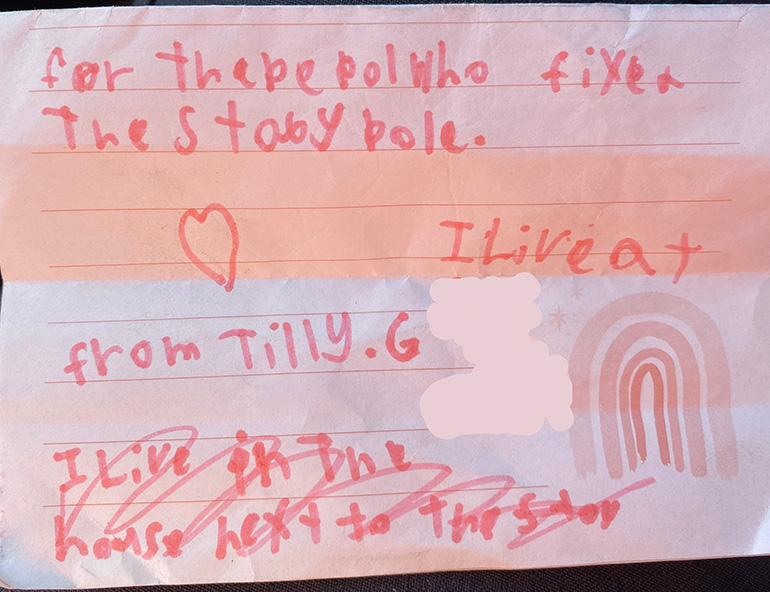 for thepepolwho fixed
The Stoby pole.
I Live at
from Tilly.G
I Live in the
house next to the stop